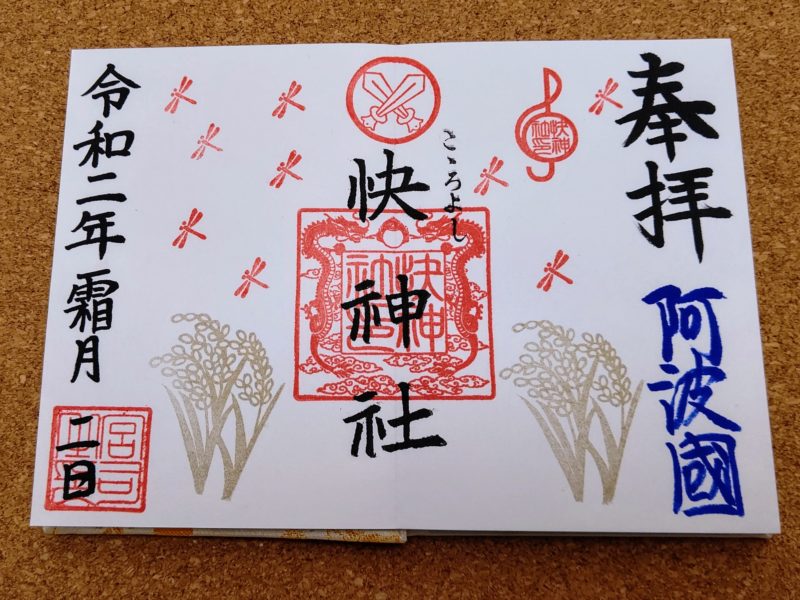 奉拝
阿波國
こゝろよし
快神社
快神社印
快神社印
令和二年霜月
二日